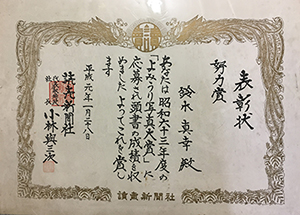 表彰状
努力賞
鈴木真幸殿
あなたは昭和六十三年度の
「よみうり写真大賞」に
応募され頭書の成績を収
めました よってこれを賞し
ます
平成元年一月二十八日
読売新聞社
社長 小林與三次
讀賣新聞社